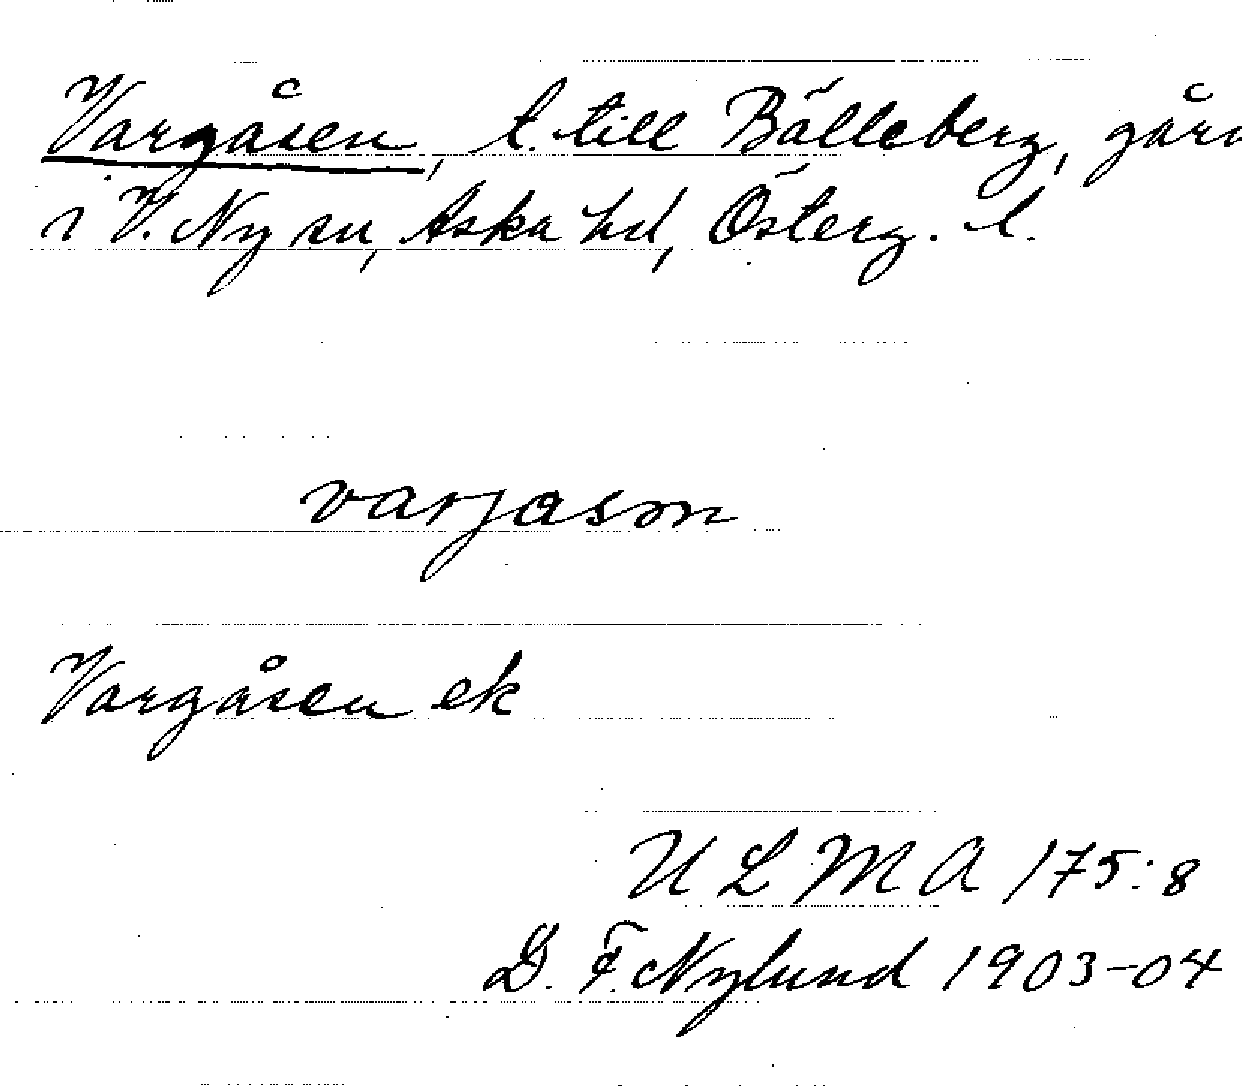 Vargåsen, t. till Bälleberg, går
i V. Ny sn, Aska hd, Österg. l.
varjason
Vargåsen ek
ULMA 175:8
D. F. Nylund 1903-04